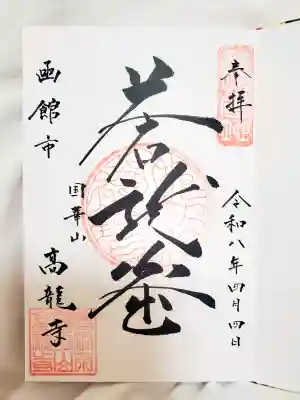 奉拝
令和八年四月四日
蒼龍窟
国華山
高龍寺
函館市